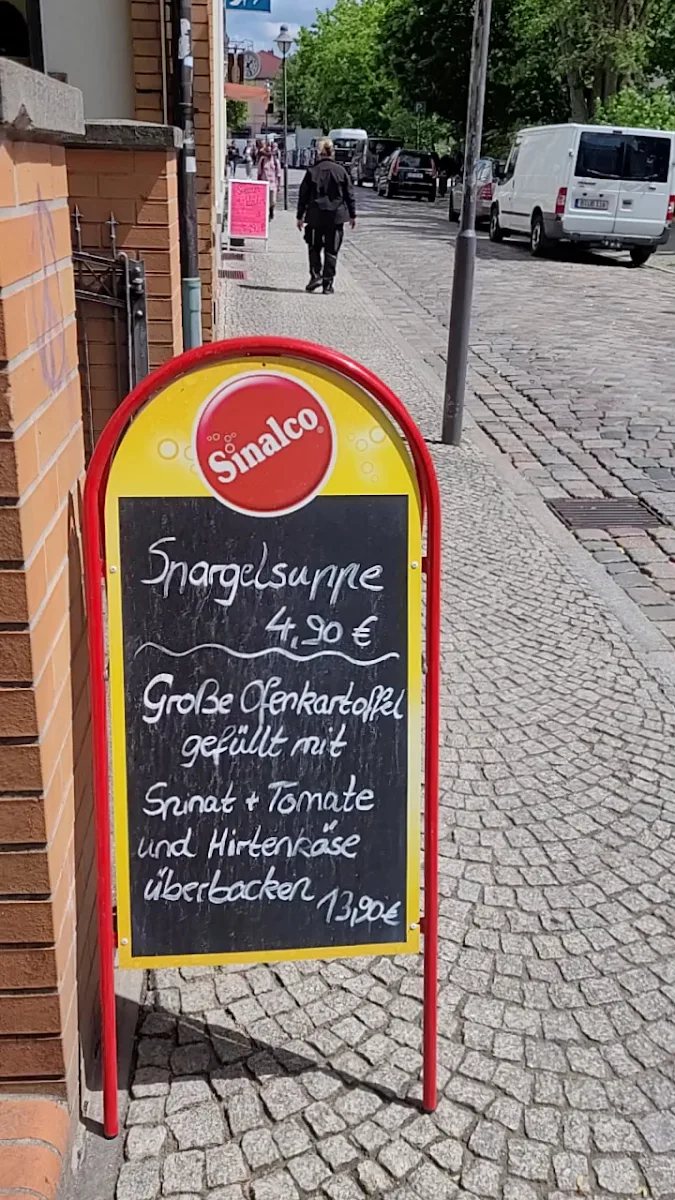 Sinalco
Spargelsuppe
4,90 €
Große Ofenkartoffel
gefüllt mit
Spinat + Tomate
und Hirtenkäse
überbacken 13,90€